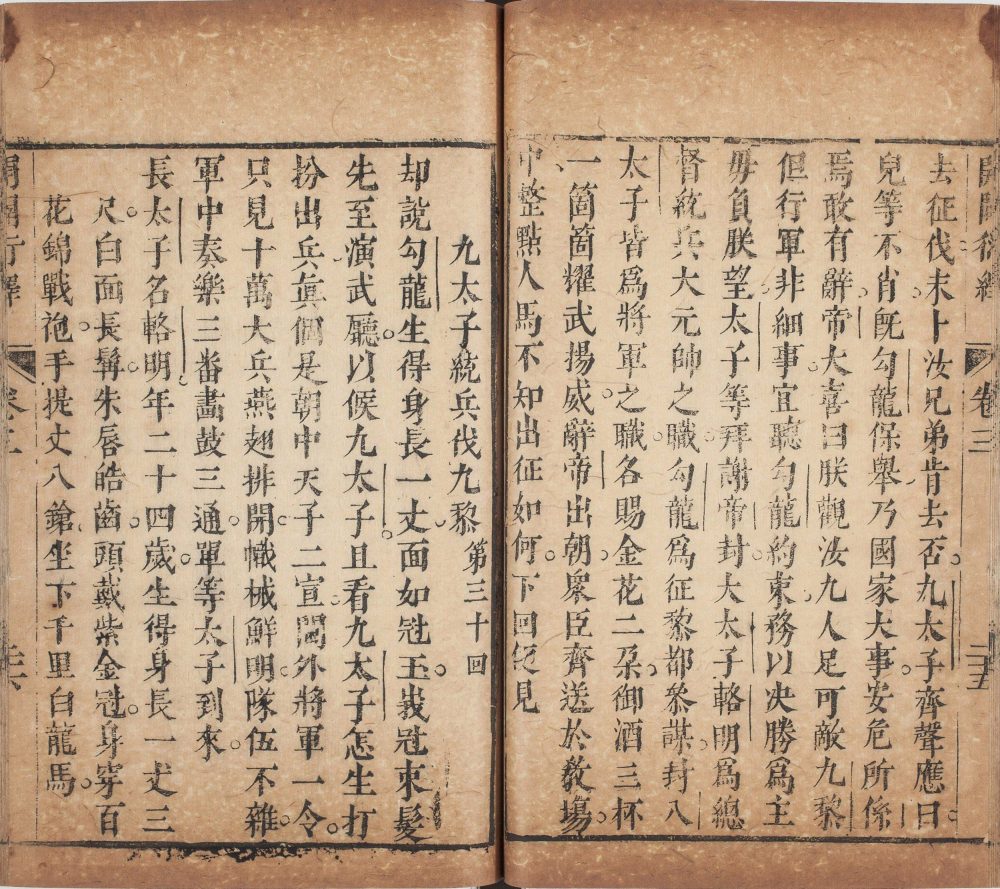 開闢衍繹
卷三
三五
去征伐未卜汝兄弟肯去否九太子齊聲應曰
兒等不肖旣勾龍保舉乃國家大事安危所係
焉敢有辭帝大喜曰朕觀汝九人足可敵九黎
但行軍非細事宜聽勾龍約束務以決勝爲主
毋負朕望太子等拜謝帝封大太子輅明爲總
督統兵大元帥之職勾龍爲征黎都叅謀封八
太子皆爲將軍之職各賜金花二朶御酒三杯
一箇箇耀武揚威辭帝出朝衆臣齊送於敎塲
中整點人馬不知出征如何下回便見
九太子統兵伐九黎 第三十回
却說勾龍生得身長一丈面如冠玉峩冠束髮
先至演武廳以候九太子且看九太子怎生打
扮出兵眞個是朝中天子二宣閫外將軍一令
只見十萬大兵燕翅排開幟械鮮明隊伍不雜
軍中奏樂三畨畵鼓三通單等太子到來
長太子名輅明年二十四歲生得身長一丈三
尺白面長髯朱唇皓齒頭戴紫金冠身穿百
花錦戰袍手提丈八鎗坐下千里白龍馬
開闢衍繹
卷三
三六